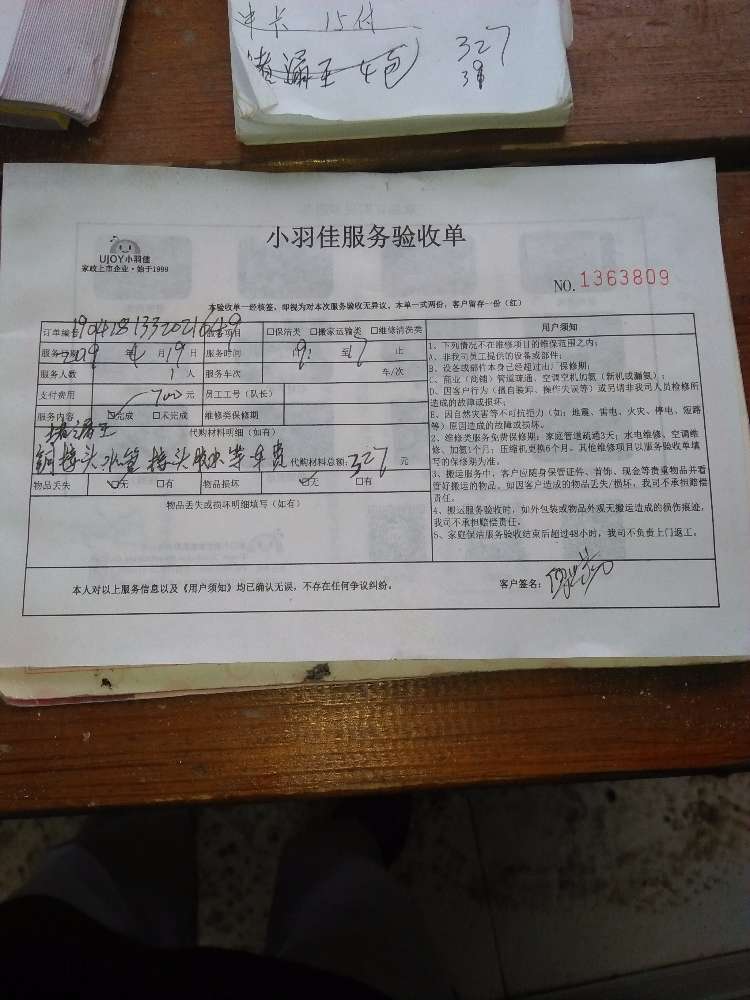 冲卡 15付
堵漏王 4包
327
UJOY小羽佳
家政上市企业·始于1999
小羽佳服务验收单
NO.1363809
本验收单一经核签,即视为对本次服务验收无异议。本单一式两份,客户留存一份(红)
订单编号 服务项目 □保洁类 □搬家运输类 □维修清洗类
服务日期 2019 年 4 月 19 日 服务时间 9: 到 17 止
服务人数 1 人 服务车次 车/次
支付费用 700 元 员工工号(队长)
服务内容 ☑完成 □未完成 维修类保修期
代购材料明细(如有)
堵漏王
铜接头水管接头胶水等车费 代购材料总额: 327 元
物品丢失 ☑无 □有 物品损坏 ☑无 □有
物品丢失或损坏明细填写(如有)
用户须知
1、下列情况不在维修项目的维保范围之内:
A、非我司员工提供的设备或部件;
B、设备或部件本身已经超过出厂保修期;
C、商业(商铺)管道疏通、空调空机加氟(新机或漏氟);
D、因客户行为(擅自装卸、操作失误等)或另请非我司人员检修所
造成的故障或损坏;
E、因自然灾害等不可抗拒力(如:地震、雷电、火灾、停电、短路
等)原因造成的故障或损坏。
2、维修类服务免费保修期:家庭管道疏通3天;水电维修、空调维
修、加氟1个月;压缩机更换6个月。其他维修项目以服务验收单填
写的保修期为准。
3、搬运服务中,客户应随身保管证件、首饰、现金等贵重物品并看
管好搬运的物品。如因客户造成的物品丢失/损坏,我司不承担赔偿
责任。
4、搬运服务验收时,如外包装或物品外观无搬运造成的损伤痕迹,
我司不承担赔偿责任。
5、家庭保洁服务验收结束后超过48小时,我司不负责上门返工。
本人对以上服务信息以及《用户须知》均已确认无误,不存在任何争议纠纷。 客户签名: